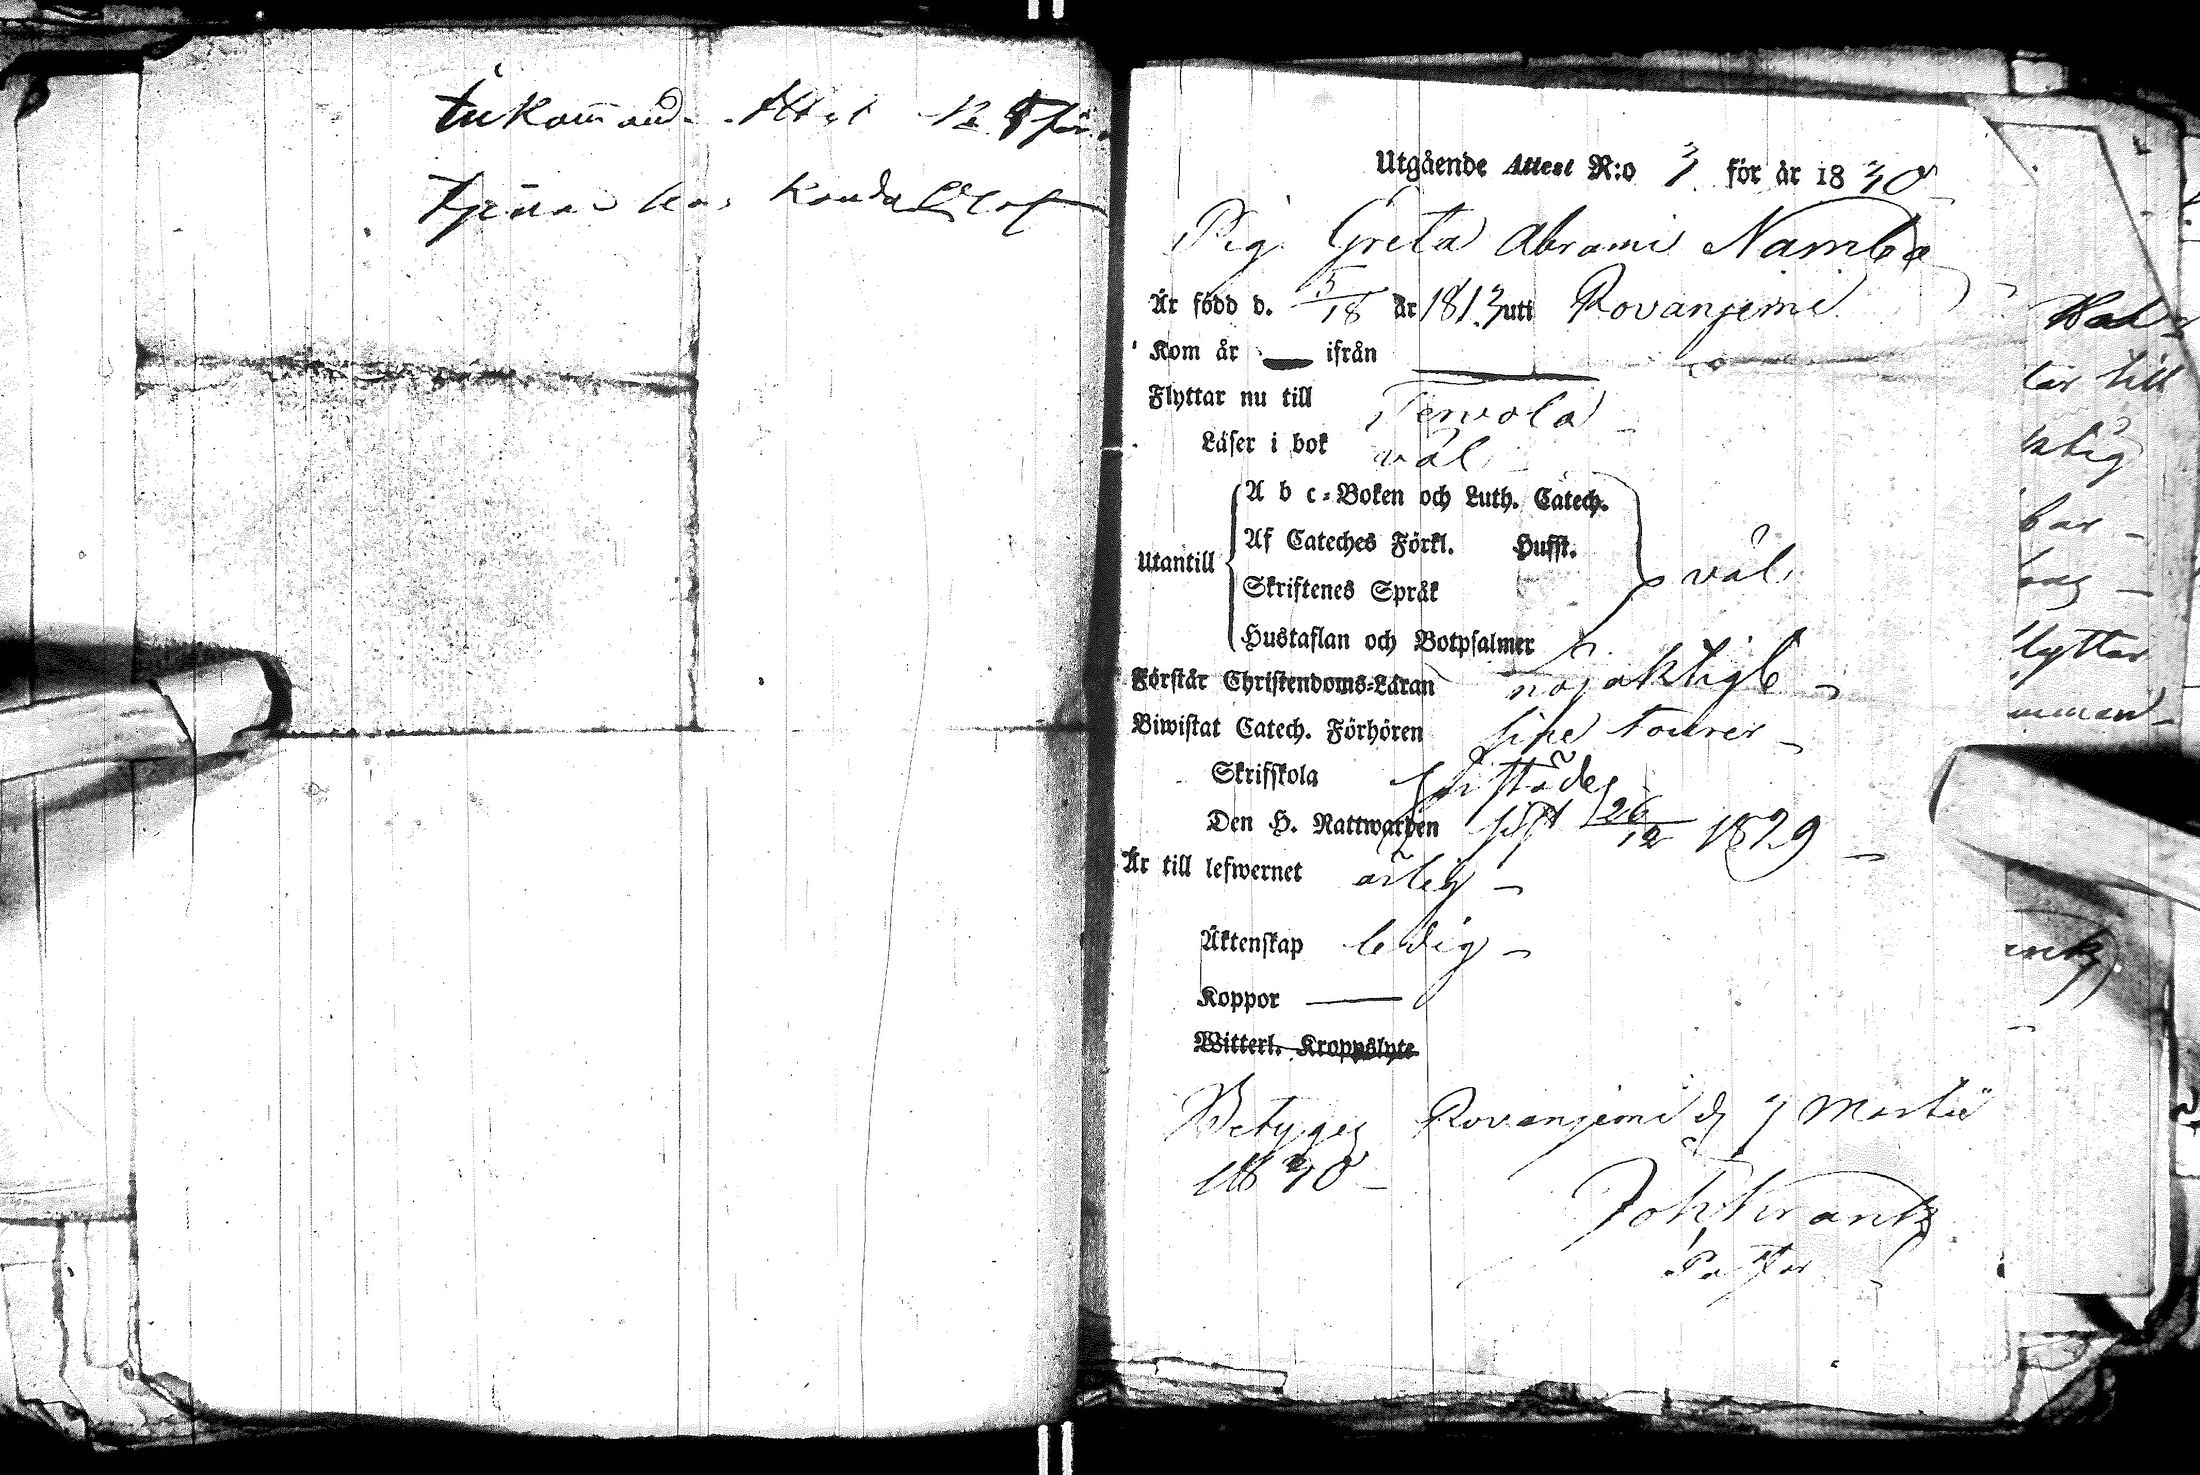 Inkommand. Attest No 8 för
Tjenar hos Kauda Olof
Utgående Attest N:o 3 för år 1830
Pig. Greta Abrami Namba
Är född d. 5/18 år 1813 uti Rovanjemi
Kom år — ifrån —
Flyttar nu till Tervola
Läser i bok väl
Utantill
A b c-Boken och Luth. Catech.
Af Cateches Förkl. Hufst.
Skriftenes Språk
väl
Hustaflan och Botpsalmer
Förstår Christendoms-Läran nöjaktigt
Biwistat Catech. Förhören sine tourer
Skrifskola
Den H. Nattwarden sist 26/12 1829
Är till lefwernet ärlig
Äktenskap ledig
Koppor —
Witterl. Kroppslyte
Betyges Rovanjemi d. 7 Martii
1830
Joh. Wrantz
Pastor
tar till
ktig
bar
lyttar